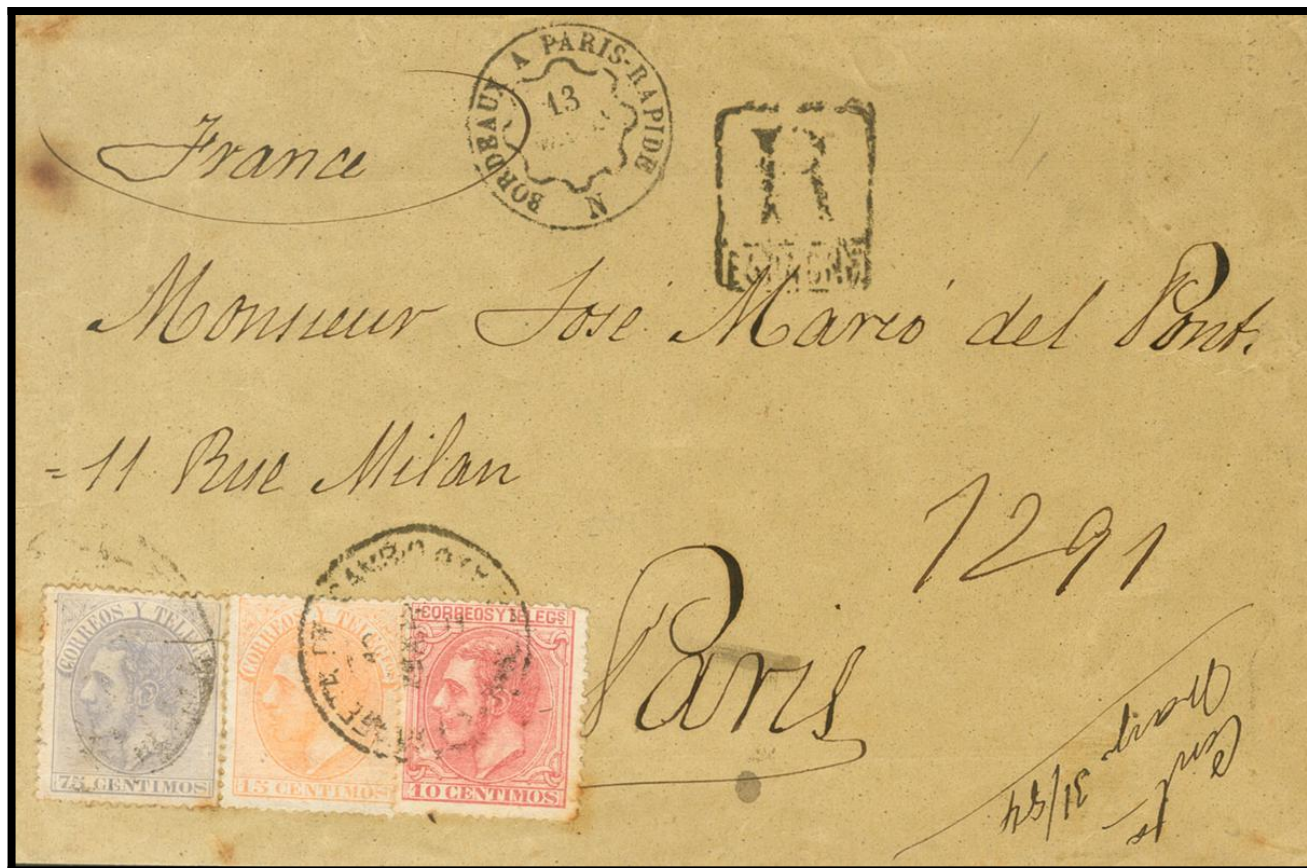 BORDEAUX A PARIS-RAPIDE N
13
France
R
Monsieur José Mario del Pont.
=11 Rue Milan
1291
Paris
CORREOS Y TELEG
75 CENTIMOS
CORREOS Y TELEG
15 CENTIMOS
CORREOS Y TELEGS
10 CENTIMOS
31/84